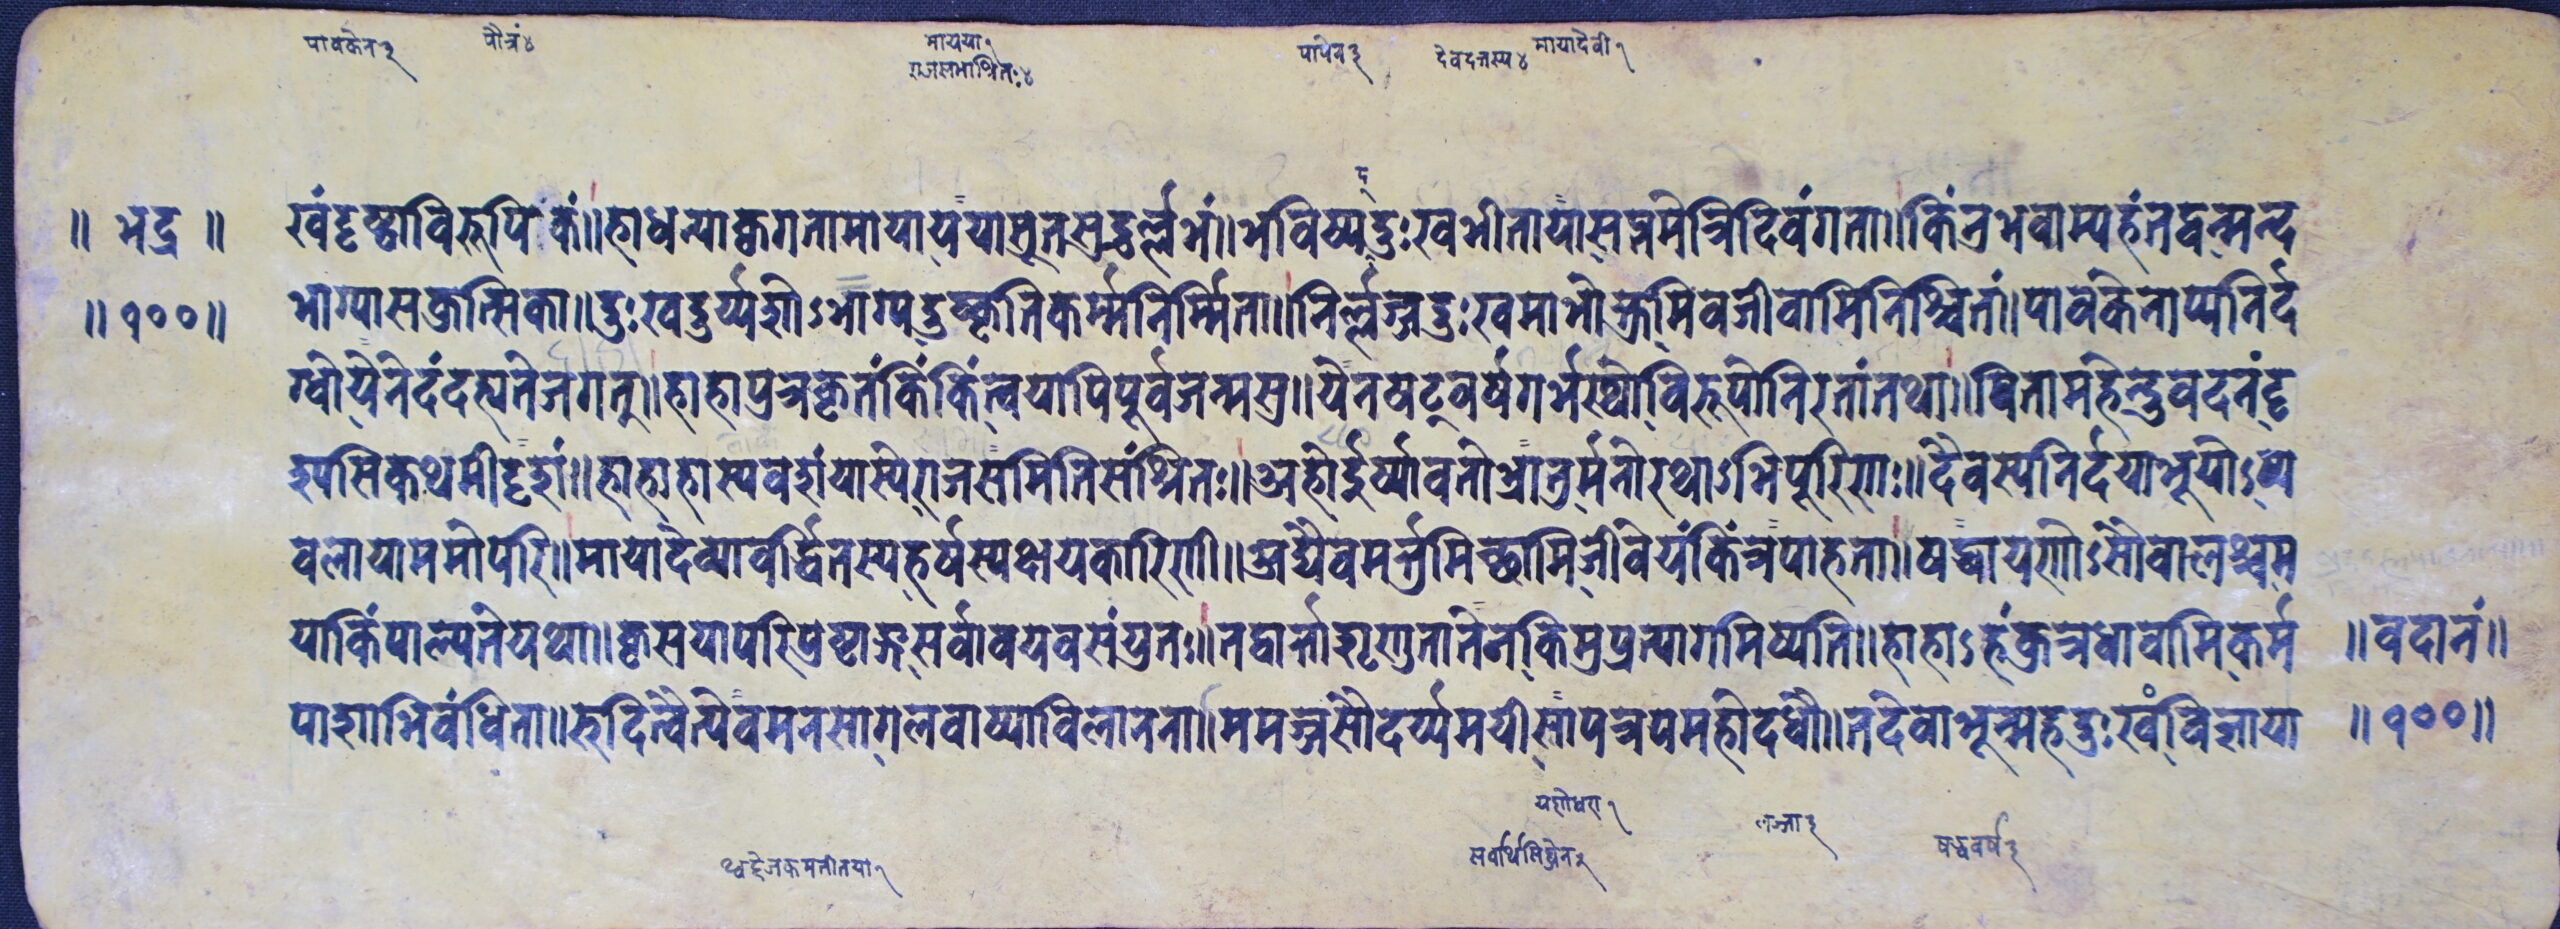 पावकेन ३ पौत्रं ४ मायया १ पापेन ३ देवदत्तस्य ४ मायादेवी १
राजसभाश्रितः ४
द्
॥ भद्र ॥ खंदृष्ट्वाविरूपिकं॥हाधन्याक्वगतामायाययासूतसुदुर्ल्लभां॥भविष्यदुःखभीतायासत्तमेत्रिदिवंगता॥किंनभवाम्यहंतद्वन्मन्द
॥ १०० ॥ भाग्यासकुत्सिका॥दुःखदुर्य्यशोऽभाग्यदुष्कृतिकर्म्मनिर्म्मिता॥निर्ल्लज्जदुःखमाभोक्तुमिवजीवामिनिश्चिता॥पावकेनाप्यनिर्द
ग्धोयेनेदंदह्यतेजगत्॥हाहापुत्रकृतंकिंकिंत्वयापिपूर्वजन्मसु॥येनषट्वर्षगर्भस्थोविरूपोनिरतांतथा॥पितामहेन्दुवदनंदृ
श्यसिकथमीदृशं॥हाहाहास्यवशंयास्येराजसमितिसंश्रितः॥अहोईर्ष्यावतोभ्रातुर्मनोरथाऽभिपूरिणः॥दैवस्यनिर्दयाभूयोऽप्य
वलायाममोपरि॥मायादेव्यावर्द्धितस्यहर्षस्यक्षयकारिणी॥अद्यैवमर्त्तुमिच्छामिजीवेयंकिंत्रपाहता॥षड्वायणोऽसौवालश्चम
याकिंपाल्यतेयथा॥कृसयापरिपुष्टाङ्गसर्वावयवसंयुतः॥तद्वार्त्तांशृणुतातेनकिमुप्रत्यागमिष्यति॥हाहाऽहंकुत्रधावामिकर्म ॥ वदानं ॥
पाशाभिवंधिता॥रुदित्वैत्येवमनसागलवाष्पाविलानना॥ममज्जसौदर्य्यमयीसापत्रपमहोदधौ॥तदैवाभून्महदुःखंविज्ञाया ॥ १०० ॥
यशोधरा १
लज्जा ३
षड्वर्ष ३